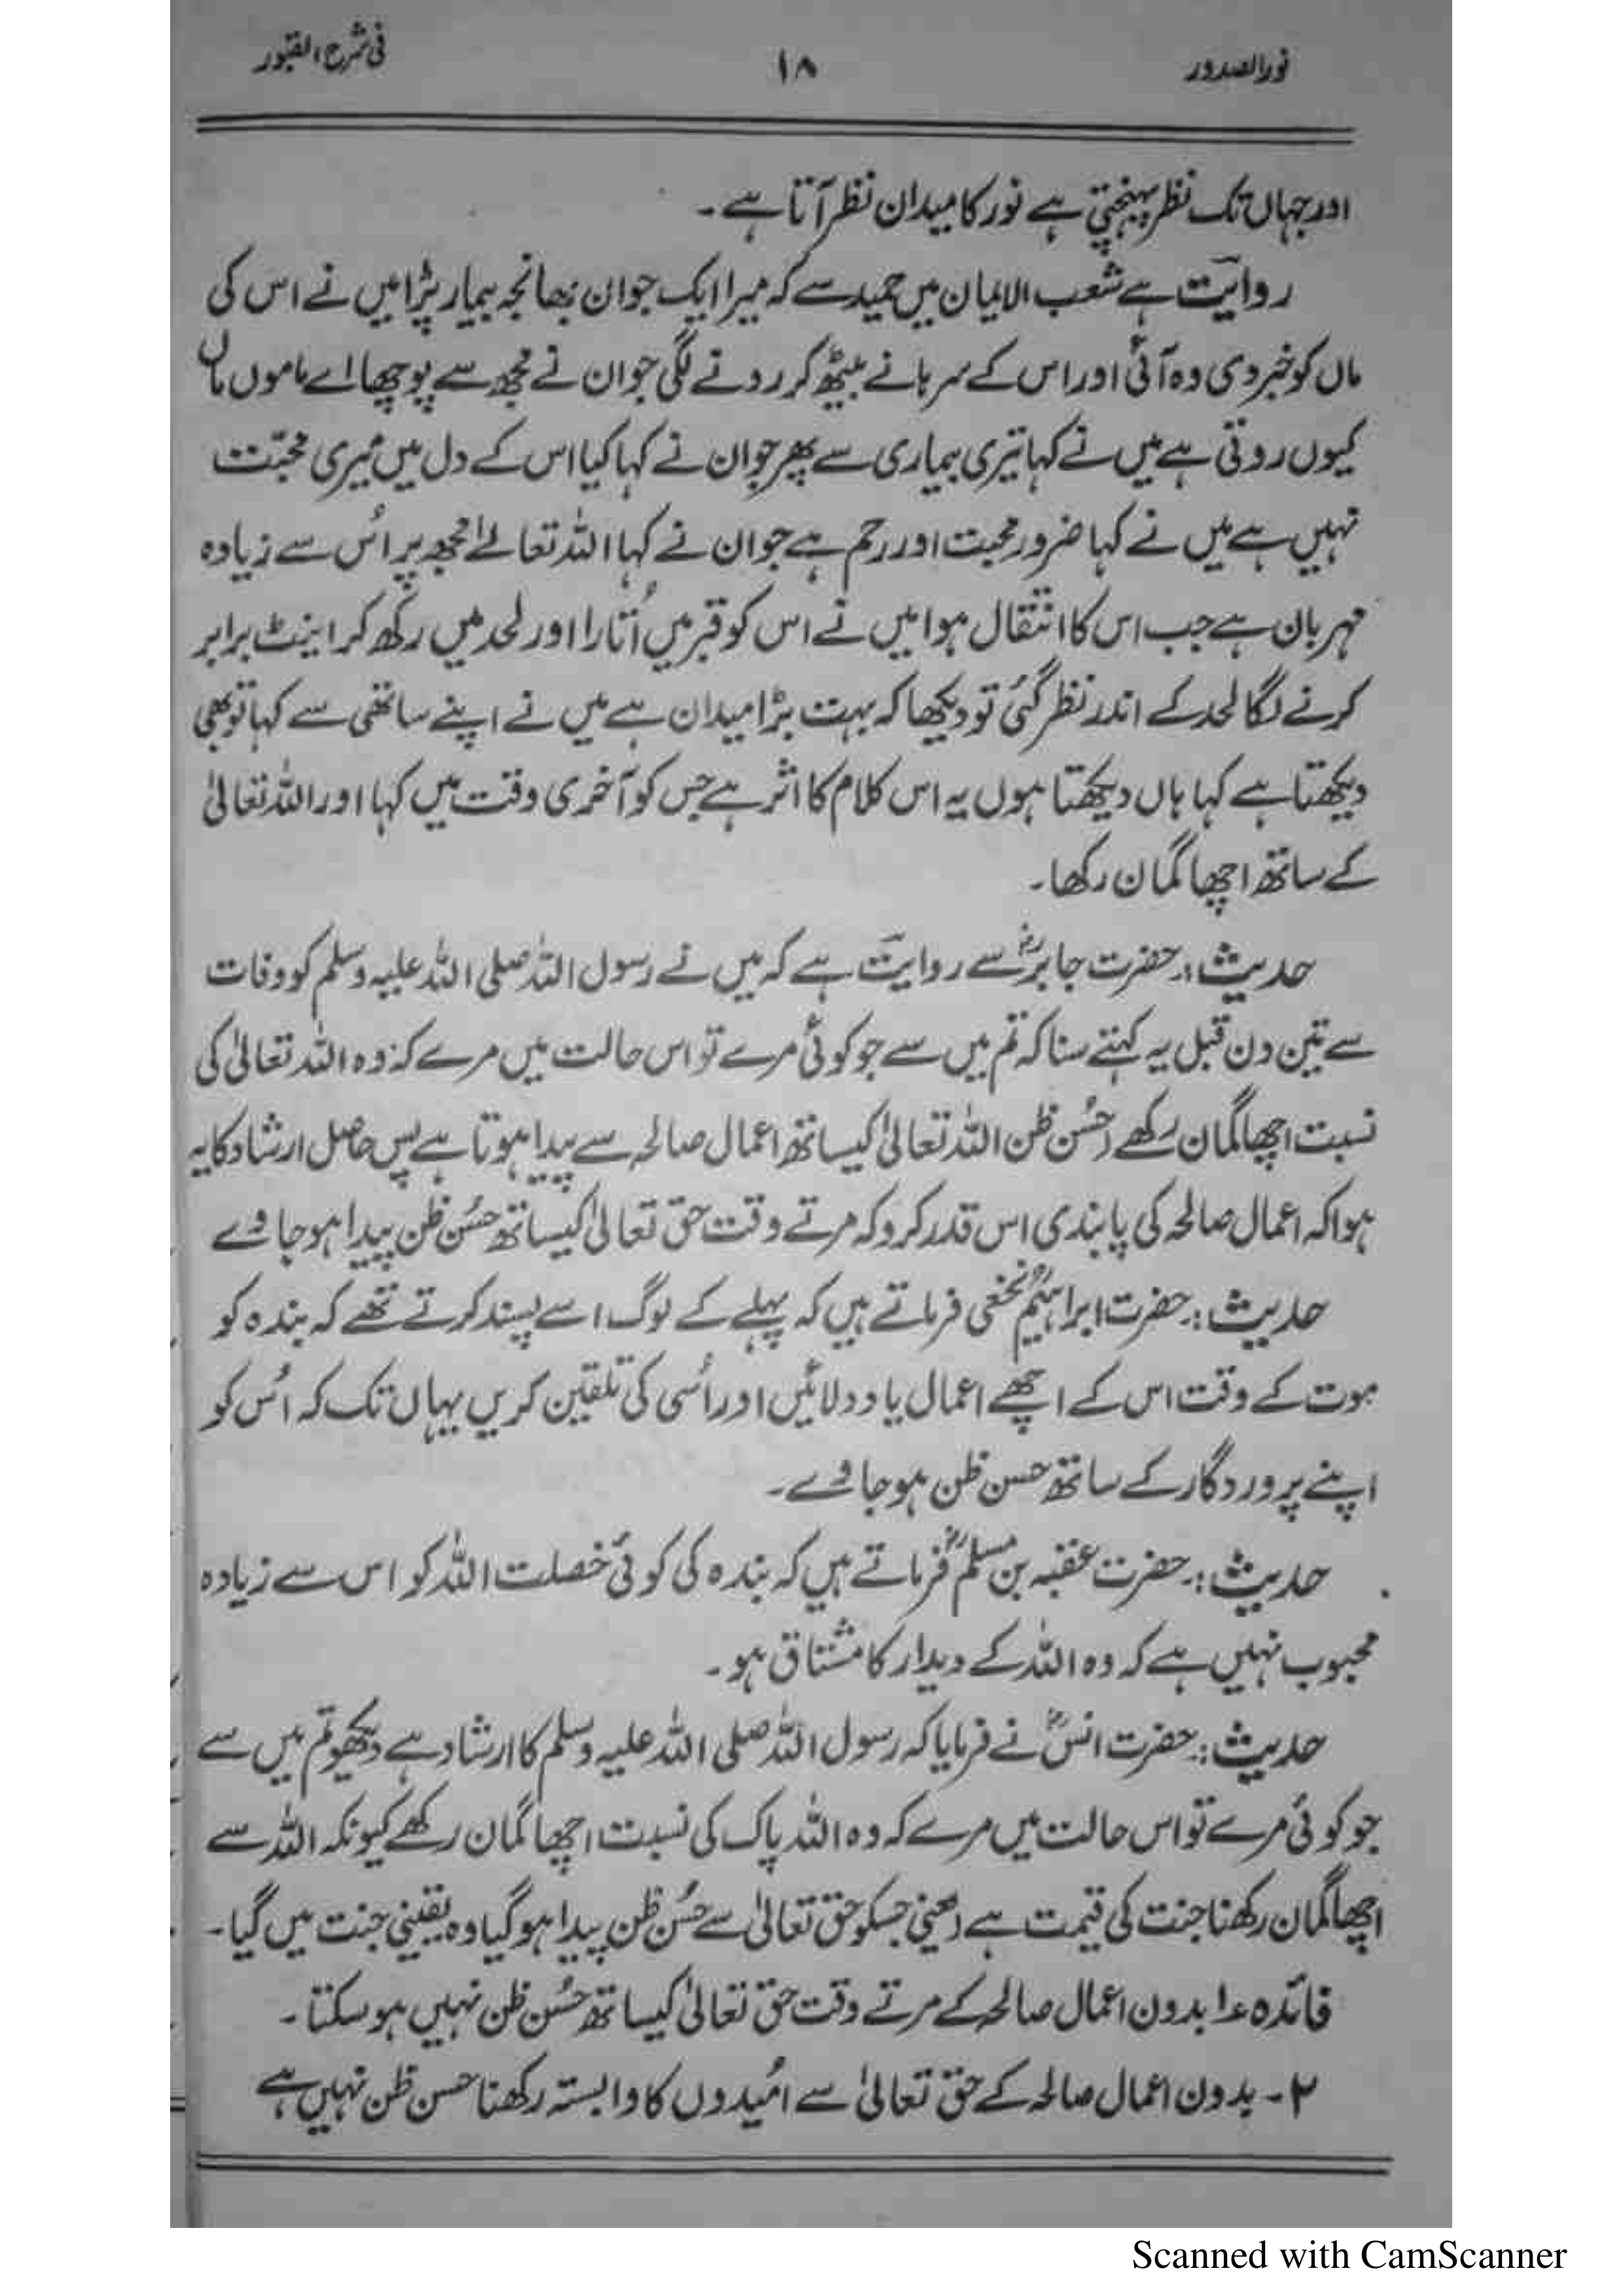 نور الصدور ۱۸ فی شرح القبور
اور جہاں تک نظر پہنچتی ہے نور کا میدان نظر آتا ہے۔
روایت ہے شعب الایمان میں حمید سے کہ میرا ایک جوان بھانجہ بیمار پڑا میں نے اس کی
ماں کو خبر دی وہ آئی اور اس کے سرہانے بیٹھ کر رونے لگی جوان نے مجھ سے پوچھا اے ماموں ماں
کیوں روتی ہے میں نے کہا تیری بیماری سے پھر جوان نے کہا کیا اس کے دل میں میری محبّت
نہیں ہے میں نے کہا ضرور محبت اور رحم ہے جوان نے کہا اللہ تعالےٰ مجھ پر اُس سے زیادہ
مہربان ہے جب اس کا انتقال ہوا میں نے اس کو قبر میں اُتارا اور لحد میں رکھ کر اینٹ برابر
کرنے لگا لحد کے اندر نظر گئی تو دیکھا کہ بہت بڑا میدان ہے میں نے اپنے ساتھی سے کہا تو بھی
دیکھتا ہے کہا ہاں دیکھتا ہوں یہ اس کلام کا اثر ہے جس کو آخری وقت میں کہا اور اللہ تعالیٰ
کے ساتھ اچھا گمان رکھا۔
حدیث :۔ حضرت جابرؓ سے روایت ہے کہ میں نے رسول اللہ صلی اللہ علیہ وسلم کو وفات
سے تین دن قبل یہ کہتے سنا کہ تم میں سے جو کوئی مرے تو اس حالت میں مرے کہ وہ اللہ تعالیٰ کی
نسبت اچھا گمان رکھے (حُسن ظن اللہ تعالیٰ کیساتھ اعمال صالحہ سے پیدا ہوتا ہے پس حاصل ارشاد کا یہ
ہوا کہ اعمال صالحہ کی پابندی اس قدر کرو کہ مرتے وقت حق تعالیٰ کیساتھ حسُن ظن پیدا ہو جاوے
حدیث :۔ حضرت ابراہیم نخعیؒ فرماتے ہیں کہ پہلے کے لوگ اسے پسند کرتے تھے کہ بندہ کو
موت کے وقت اس کے اچھے اعمال یاد دلائیں اور اُسی کی تلقین کریں یہاں تک کہ اُس کو
اپنے پروردگار کے ساتھ حسن ظن ہو جاوے۔
حدیث :۔ حضرت عقبہ بن مسلمؓ فرماتے ہیں کہ بندہ کی کوئی خصلت اللہ کو اس سے زیادہ
محبوب نہیں ہے کہ وہ اللہ کے دیدار کا مشتاق ہو۔
حدیث :۔ حضرت انسؓ نے فرمایا کہ رسول اللہ صلی اللہ علیہ وسلم کا ارشاد ہے دیکھو تم میں سے
جو کوئی مرے تو اس حالت میں مرے کہ وہ اللہ پاک کی نسبت اچھا گمان رکھے کیونکہ اللہ سے
اچھا گمان رکھنا جنت کی قیمت ہے (یعنی جسکو حق تعالیٰ سے حُسن ظن پیدا ہو گیا وہ یقینی جنت میں گیا۔
فائدہ ۱ بدون اعمال صالحہ کے مرتے وقت حق تعالیٰ کیساتھ حسُن ظن نہیں ہو سکتا۔
۲۔ بدون اعمال صالحہ کے حق تعالیٰ سے امیدوں کا وابستہ رکھنا حسن ظن نہیں ہے
Scanned with CamScanner